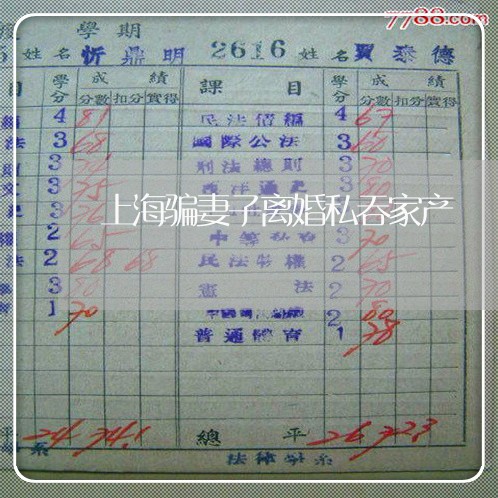 7788.com
學期
5 姓名 忻鼎明 2616 姓名 賈泰德
目 學分 成績 課目 學分 成績
分數 扣分 實得 分數 扣分 實得
4 81 民法債編 4 67
法 3 68 國際公法 3 60
3 刑法總則 3 70
3 75 西洋通史 3 80
3 76
上海骗妻子离婚私吞家产
2 65 3 70
法 2 68 68 民法物權 2 65
3 80 憲法 2 70
1 70 2 80
普通體育 1 78
平 24 74.1 總平 26 72.3
系 法律學系